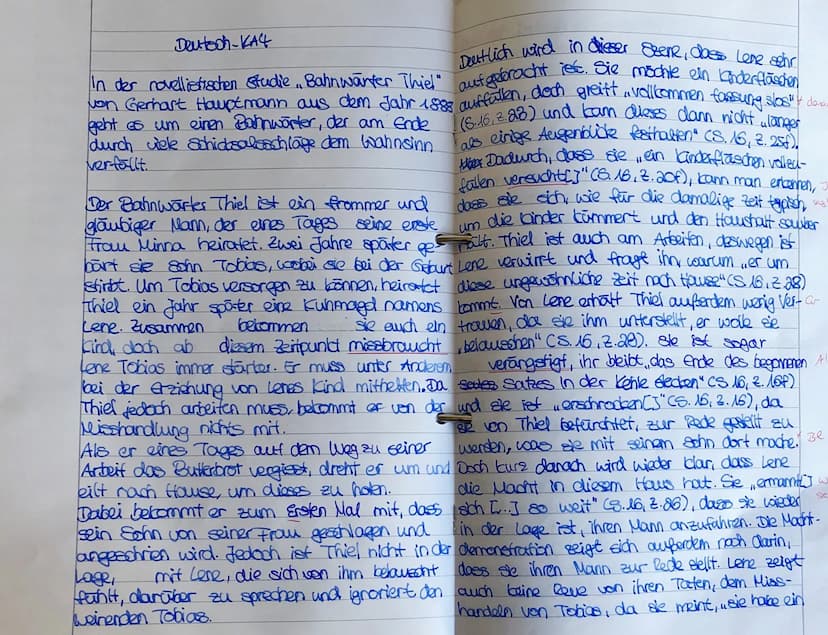 Deutsch-KA4
In der novellistischen Studie „Bahnwärter Thiel"
von Gerhart Hauptmann aus dem Jahr 1888
geht es um einen Bahnwärter, der am Ende
durch viele Schicksalsschläge dem Wahnsinn
verfällt.
Der Bahnwärter Thiel ist ein frommer und
gläubiger Mann, der eines Tages seine erste
Frau Minna heiratet. Zwei Jahre später ge-
bärt sie Sohn Tobias, wobei sie bei der Geburt
stirbt. Um Tobias versorgen zu können, heiratet
Thiel ein Jahr später eine Kuhmagd namens
Lene. Zusammen bekommen sie auch ein
Kind, doch ab diesem Zeitpunkt missbraucht
Lene Tobias immer stärker. Er muss unter Anderem
bei der Erziehung von Lenes Kind mithelfen. Da
Thiel jedoch arbeiten muss, bekommt er von der
Misshandlung nichts mit.
Als er eines Tages auf dem Weg zu seiner
Arbeit das Butterbrot vergisst, dreht er um und
eilt nach Hause, um dieses zu holen.
Dabei bekommt er zum Ersten Mal mit, dass
sein Sohn von seiner Frau geschlagen und
angeschrien wird. Jedoch ist Thiel nicht in der
Lage, mit Lene, die sich von ihm belauscht
fühlt, darüber zu sprechen und ignoriert den
weinenden Tobias.
Deutlich wird in dieser Szene, dass Lene sehr
aufgebracht ist. Sie möchte ein Kinderfläschchen
auffüllen, doch greift „vollkommen fassungslos"
(S.16, Z.28) und kann dieses dann nicht „länger
als einige Augenblicke festhalten" (S.16, Z.25f).
Dadurch, dass sie „ein Kinderfläschchen
füllen versucht[]" (S.16, Z.20f), kann man erkennen,
dass sie sich, wie für die damalige Zeit typisch,
um die Kinder kümmert und den Haushalt sauber
hält. Thiel ist auch am Arbeiten, deswegen ist
Lene verwirrt und fragt ihn, warum „er um
diese ungewöhnliche Zeit nach Hause" (S.16, Z.28)
kommt. Von Lene erhält Thiel außerdem wenig Ver-
trauen, da sie ihm unterstellt, er wolle sie
„belauschen" (S.16, Z.28). Sie ist sogar
verängstigt, ihr bleibt „das Ende des begonnenen
Satzes in der Kehle stecken" (S.16, Z.16f)
und sie ist „erschrocken[]" (S.16, Z.16), da
sie von Thiel befürchtet, zur Rede gestellt zu
werden, was sie mit seinem Sohn dort mache.
Doch kurz danach wird wieder klar, dass Lene
die Macht in diesem Haus hat. Sie „ermannt[]
sich [..] so weit" (S.16, Z.26), dass sie wieder
in der Lage ist, ihren Mann anzufahren. Die Macht-
demonstration zeigt sich außerdem noch darin,
dass sie ihren Mann zur Rede stellt. Lene zeigt
auch keine Reue von ihren Taten, dem Miss-
handeln von Tobias, da sie meint, „sie habe ein